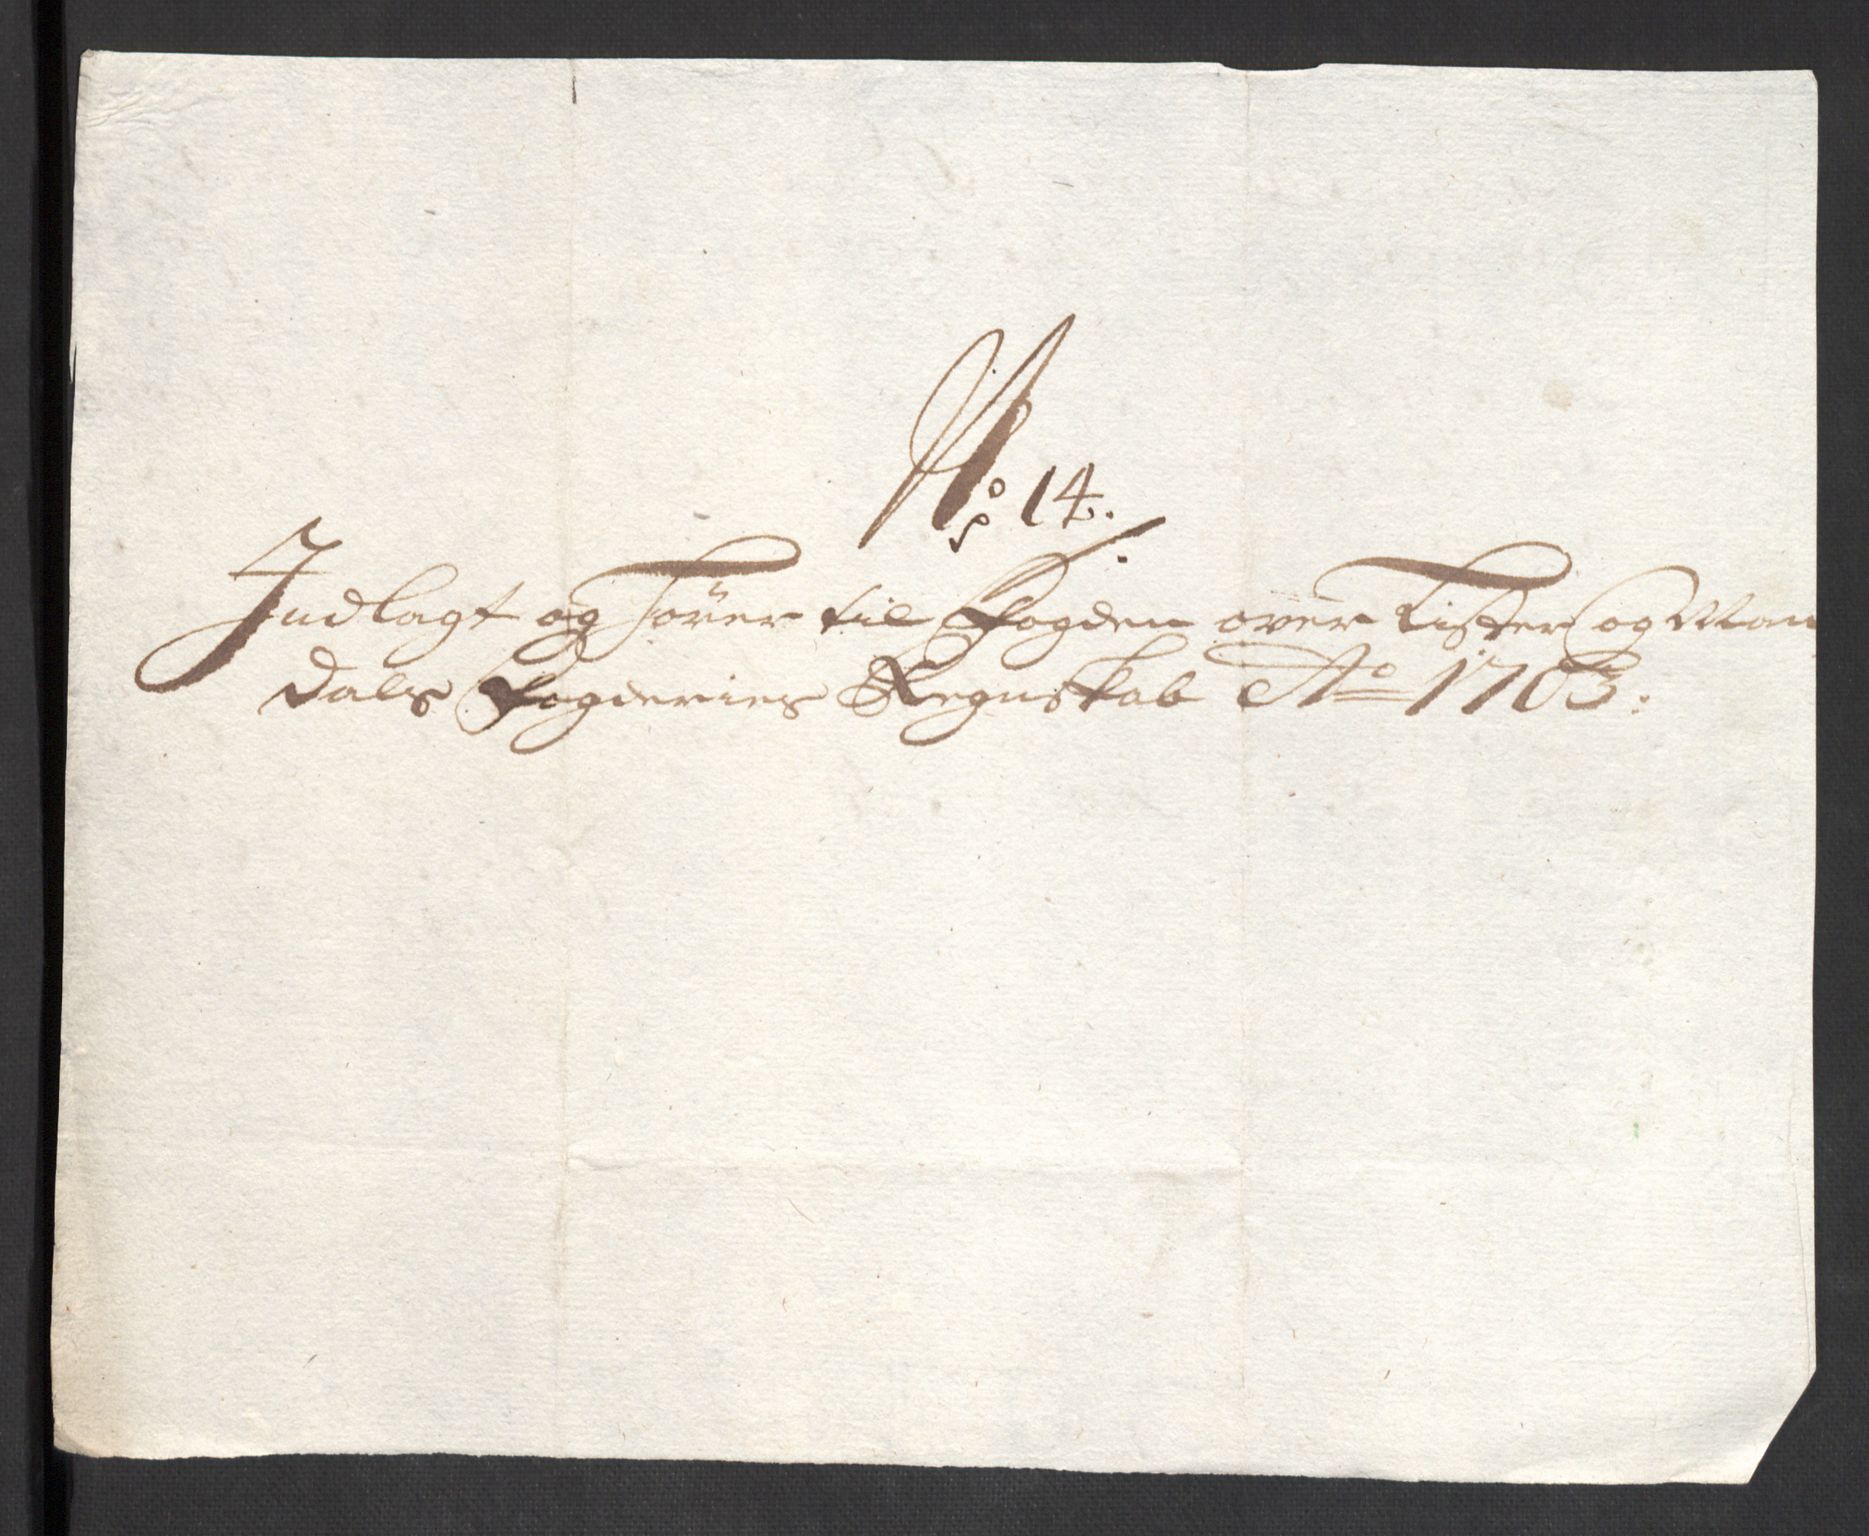 No: 14.
Indlagt og Hörer til Fogden over Lister og Man
dals Fogderies Regnskab Ao 1703: